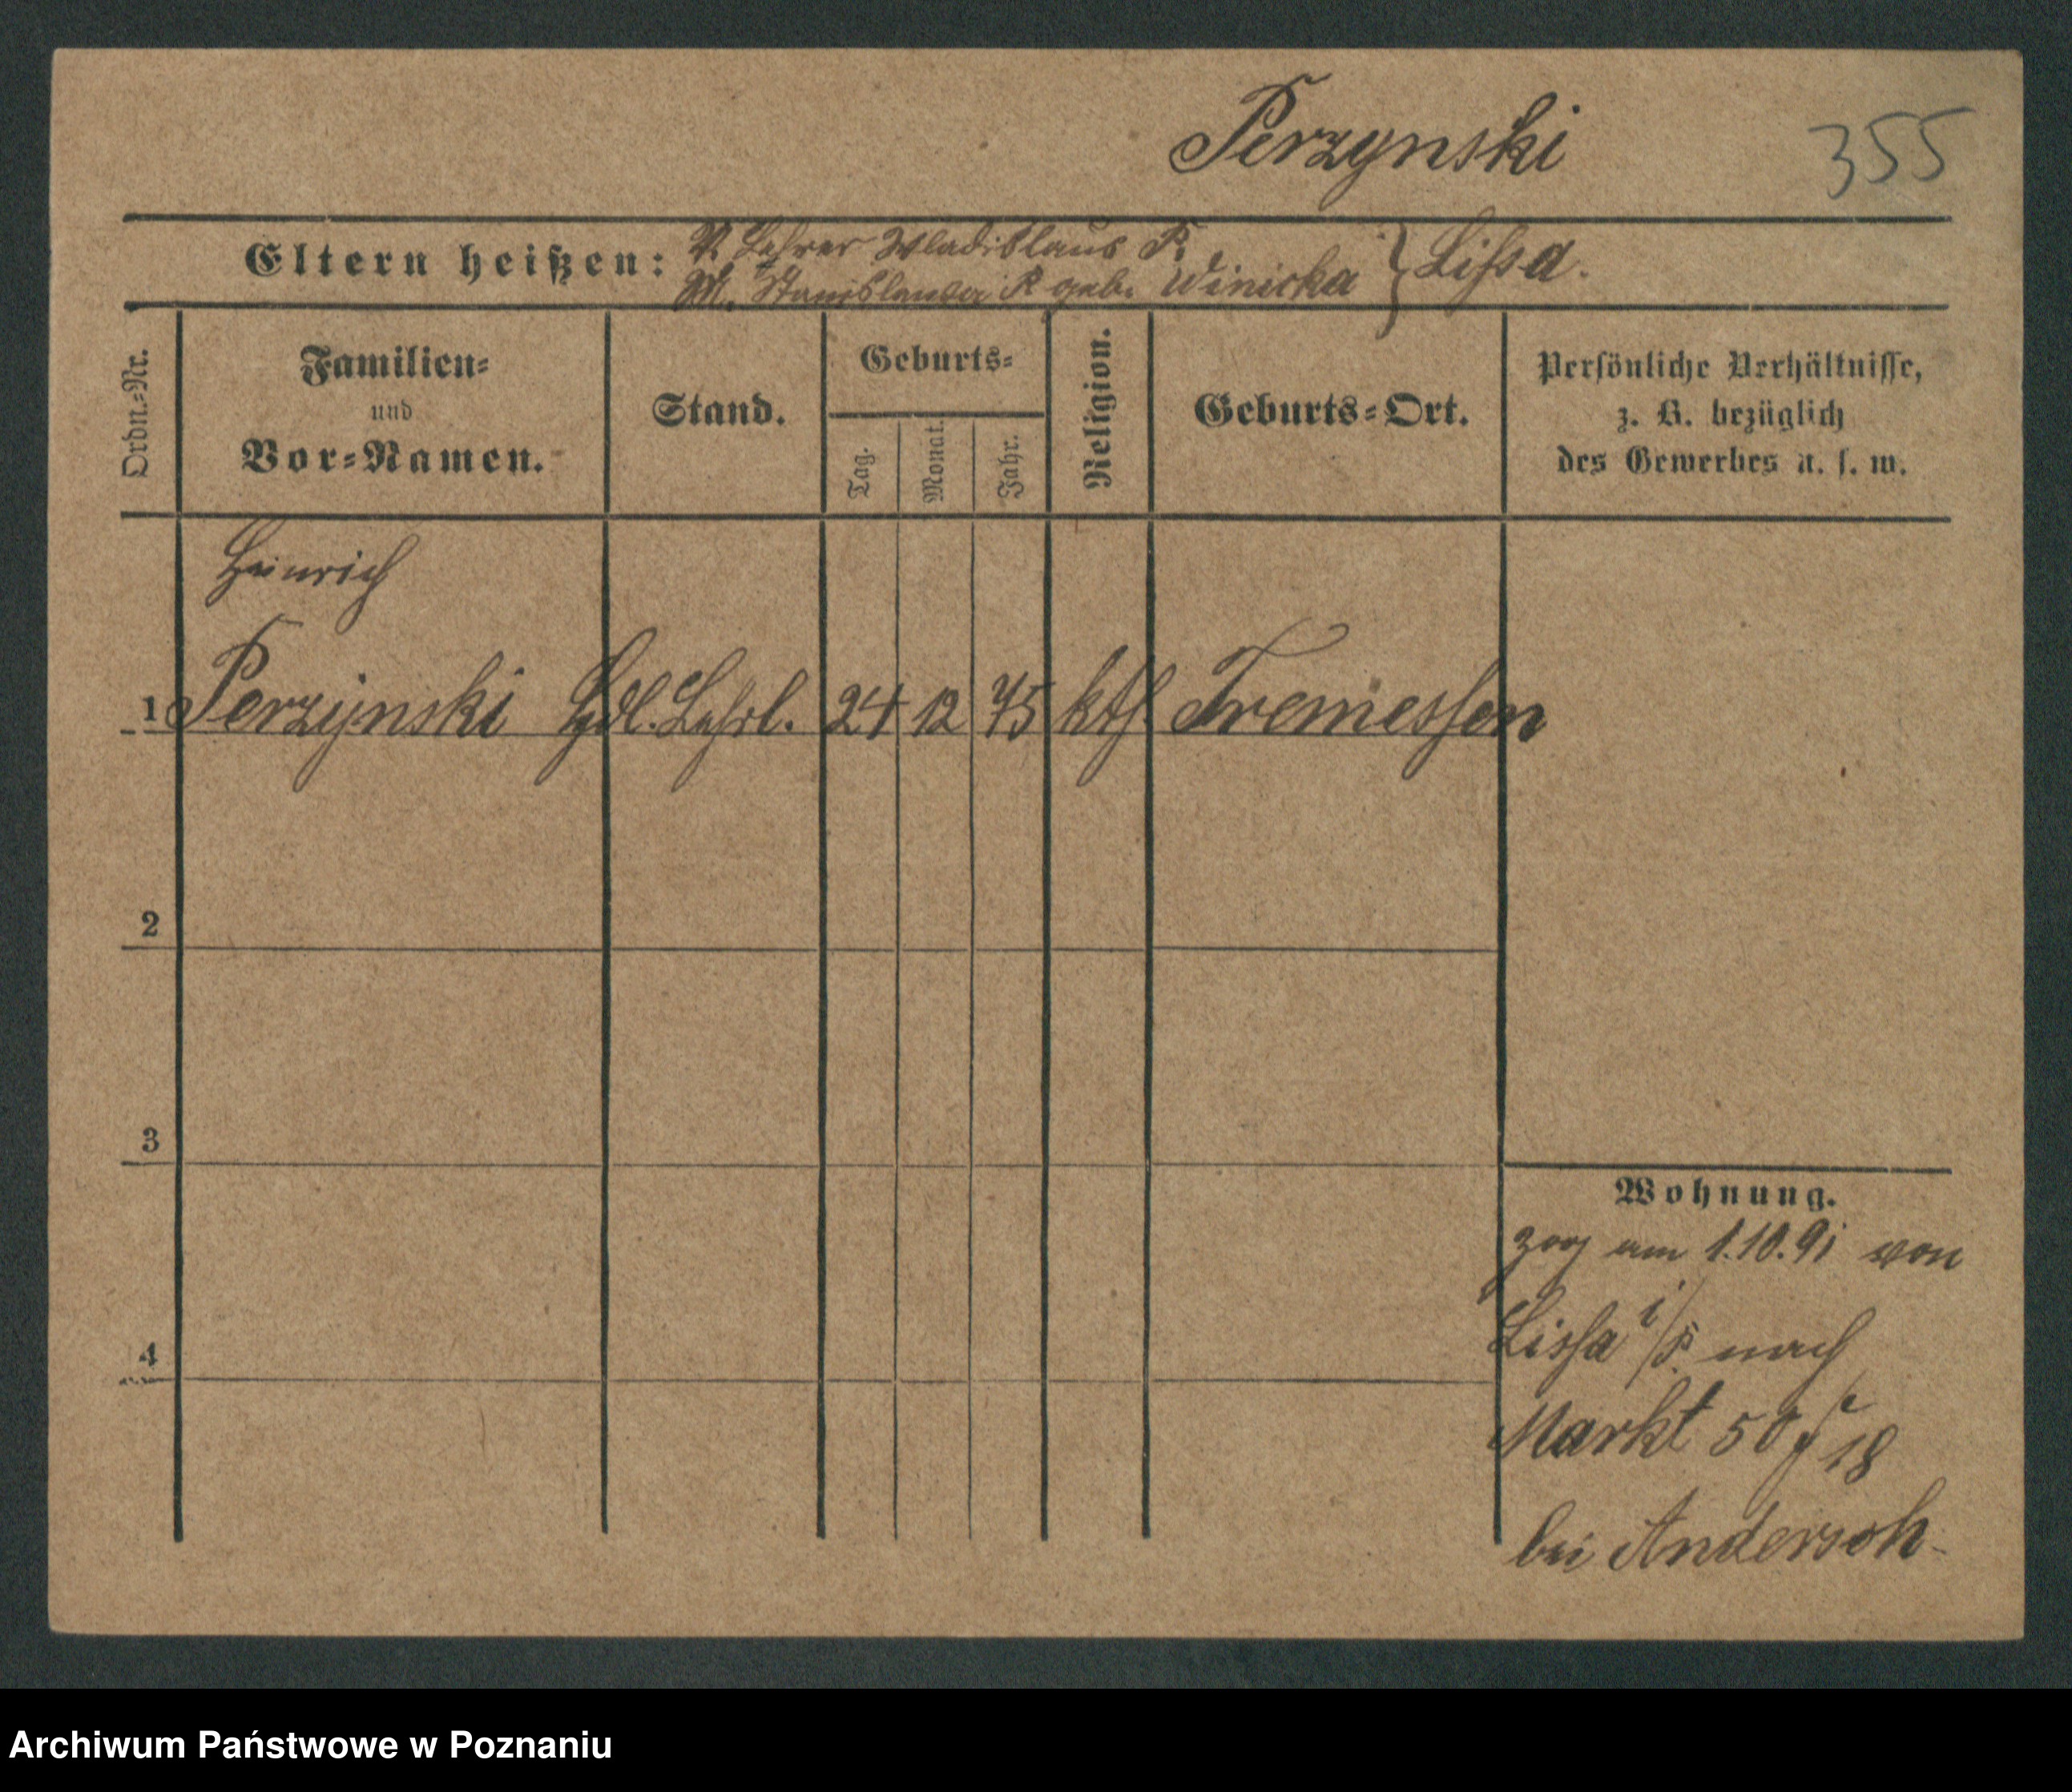 Perzynski
355
Eltern heißen: V. Lehrer Wladislaus P.
M. Stanislawa P geb. Winicka } Lissa.
Ordn.-Nr.
Familien-
und
Vor-Namen.
Stand.
Geburts-
Tag.
Monat.
Jahr.
Religion.
Geburts-Ort.
Persönliche Verhältnisse,
z. B. bezüglich
des Gewerbes u. s. w.
Heinrich
1 Perzynski Hdl. Lehrl. 24 12 75 kth. Tremessen
2
3
4
Wohnung.
zog am 1.10.91 von
Lissa i/P. nach
Markt 50 18
bei Andersch
Archiwum Państwowe w Poznaniu